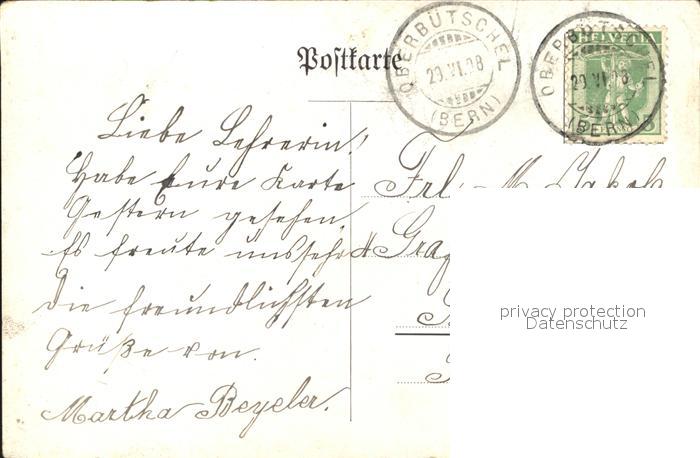 Postkarte
OBERBÜTSCHEL
29.VI.08
(BERN)
HELVETIA
OBERBÜTSCHEL
29.VI.08
(BERN)
Liebe Lehrerin!
Habe Eure Karte
Gestern gesehen.
Es freute uns sehr
Die freundlichsten
Grüße von.
Martha Beyeler.
Frl. M.
privacy protection
Datenschutz